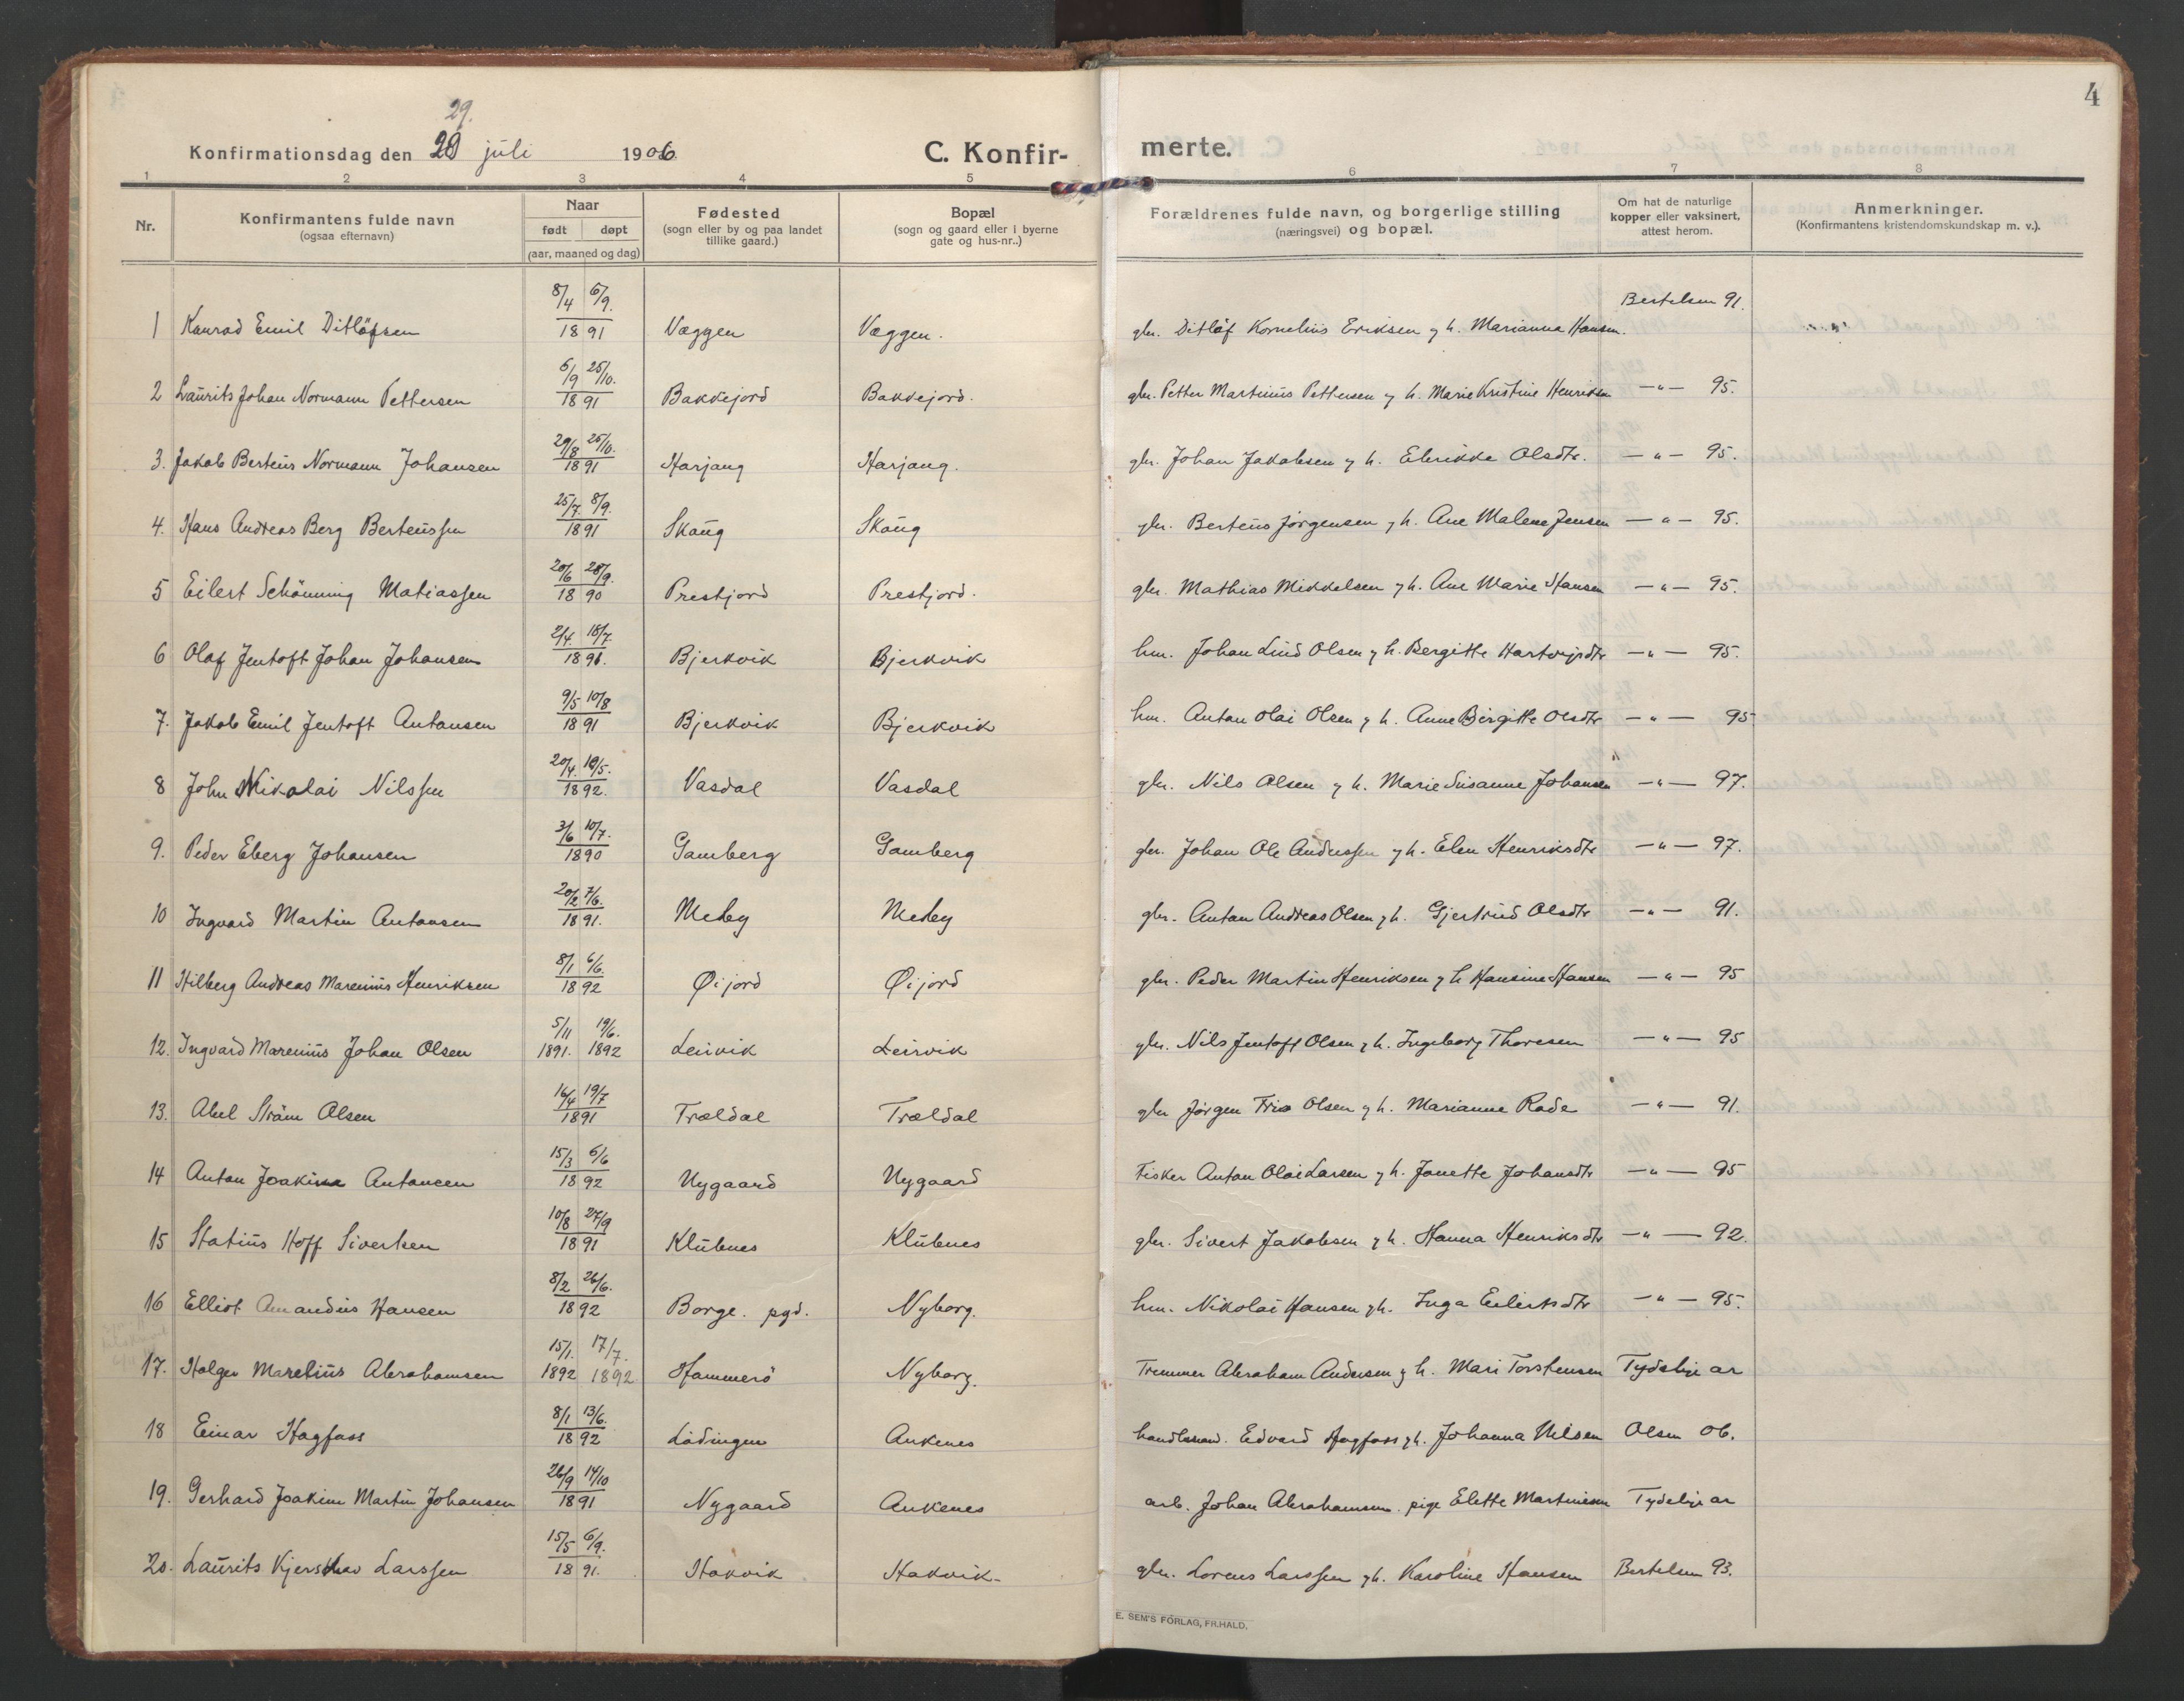 4
29.
Konfirmationsdag den 29 juli 1906 C. Konfir- merte.
1 2 3 4 5 6 7 8
Nr. Konfirmantens fulde navn (ogsaa efternavn) Naar født døpt (aar, maaned og dag) Fødested (sogn eller by og paa landet tillike gaard.) Bopæl (sogn og gaard eller i byerne gate og hus-nr..) Forældrenes fulde navn, og borgerlige stilling (næringsvei) og bopæl. Om hat de naturlige kopper eller vaksinert, attest herom. Anmerkninger. (Konfirmantens kristendomskundskap m. v.).
1 Konrad Emil Ditløfsen 8/4 6/9. 1891 Væggen Væggen. gbr. Ditløf Kornelius Eriksen og h. Marianna Hansen. Bertelsen 91.
2 Laurits Johan Normann Pettersen 6/9 25/10. 1891 Bakkejord Bakkejord. gbr. Petter Martinus Pettersen og h. Marie Kristine Henriksen —"— 95.
3. Jakob Berteus Normann Johansen 29/8 25/10. 1891 Harjang Harjang. gbr. Johan Jakobsen og h. Elerikke Olsdtr. —"— 95.
4. Hans Andreas Berg Berteussen 25/7. 8/9. 1891 Skaug Skaug gbr. Berteus Jørgensen og h. Ane Malene Jensen —"— 95.
5 Eilert Schönning Matiassen 20/6 28/9. 1890 Prestjord Prestjord. gbr. Mathias Mikkelsen og h. Ane Marie Hansen —"— 95.
6 Olaf Jentoft Johan Johansen 2/4. 18/7. 1891. Bjerkvik Bjerkvik hm. Johan Lind Olsen og h. Bergitte Hartvigsdtr —"— 95.
7. Jakob Emil Jentoft Antonsen 9/5 10/8 1891 Bjerkvik Bjerkvik hm. Anton Olai Olsen og h. Anne Birgitte Olsdtr —"— 95
8 John Nikolai Nilssen 20/4. 19/5. 1892. Vasdal Vasdal gbr. Nils Olsen og h. Marie Susanne Johansen —"— 97.
9. Peder Eberg Johansen 3/6 10/7. 1890 Gamberg Gamberg gbr. Johan Ole Anderssen og h. Elen Henriksdtr —"— 97.
10 Ingvard Martin Antonsen 20/2 7/6. 1891. Medby Medby gbr. Anton Andreas Olsen og h. Gjertrud Olsdtr —"— 91.
11 Hilberg Andreas Marenius Henriksen 8/1 6/6. 1892 Øijord Øijord gbr. Peder Martin Henriksen og h Hansine Hansen —"— 95
12. Ingvard Marenius Johan Olsen 5/11 19/6. 1891. 1892 Leirvik Leirvik gbr. Nils Jentoft Olsen og h. Ingeborg Thoresen —"— 95
13. Abel Strøm Olsen 16/4 19/7 1891 Trældal Trældal gbr Jørgen Friis Olsen og h. Marianne Rode —"— 91.
14 Anton Joakim Antonsen 15/3 6/6 1892 Nygaard Nygaard Fisker Anton Olai Larsen og h. Jonette Johansdtr —"— 95
15 Statius Hoff Sivertsen 10/8 27/9 1891 Klubnes Klubnes gbr. Sivert Jakobsen og h. Hanna Henriksdtr —"— 92.
16 Elliot Amandus Hansen 8/2 26/6. 1892 Borge. pgd. Nyborg. hm. Nikolai Hansen og h. Inga Eilertsdtr —"— 95.
17. Holger Marelius Abrahamsen 15/1. 17/7. 1892 1892. Hammerö Nyborg. Tremmer Abraham Andersen og h. Mari Torstensen Tydelige ar
18 Einar Hagfors 8/1 13/6. 1892 Lødingen Ankenes handlesmand. Edvard Hagfors og h. Johanna Nilsen Olsen 06.
19. Gerhard Joakim Martin Johansen 26/9 14/10 1891 Nygaard Ankenes arb. Johan Abrahamsen. pige Elette Martinesen Tydelige ar
20. Laurits Larssen 15/5 6/9. 1891. Hakvik Hakvik. gbr. Lorens Larssen og h. Karoline Hansen Bertelsen 93.
E. SEM'S FORLAG, FR.HALD.